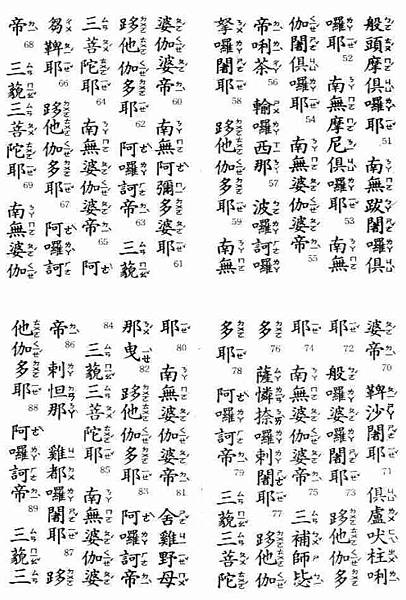 般頭摩俱囉耶 51 南無跋闍囉俱
囉耶 52 南無摩尼俱囉耶 53 南無
伽闍俱囉耶 54 南無婆伽婆帝 55
帝唎茶 56 輸囉西那 57 波囉訶囉
拏囉闍耶 58 跢他伽多耶 59 南無
婆伽婆帝 60 南無阿彌多婆耶 61
跢他伽多耶 62 阿囉訶帝 63 三藐
三菩陀耶 64 南無婆伽婆帝 65 阿
芻鞞耶 66 跢他伽多耶 67 阿囉訶
帝 68 三藐三菩陀耶 69 南無婆伽
婆帝 70 鞞沙闍耶 71 俱盧吠柱唎
耶 72 般囉婆囉闍耶 73 跢他伽多
耶 74 南無婆伽婆帝 75 三補師毖
多 76 薩憐捺囉剌闍耶 77 跢他伽
多耶 78 阿囉訶帝 79 三藐三菩陀
耶 80 南無婆伽婆帝 81 舍雞野母
那曳 82 跢他伽多耶 83 阿囉訶帝
84 三藐三菩陀耶 85 南無婆伽婆
帝 86 剌怛那雞都囉闍耶 87 跢
他伽多耶 88 阿囉訶帝 89 三